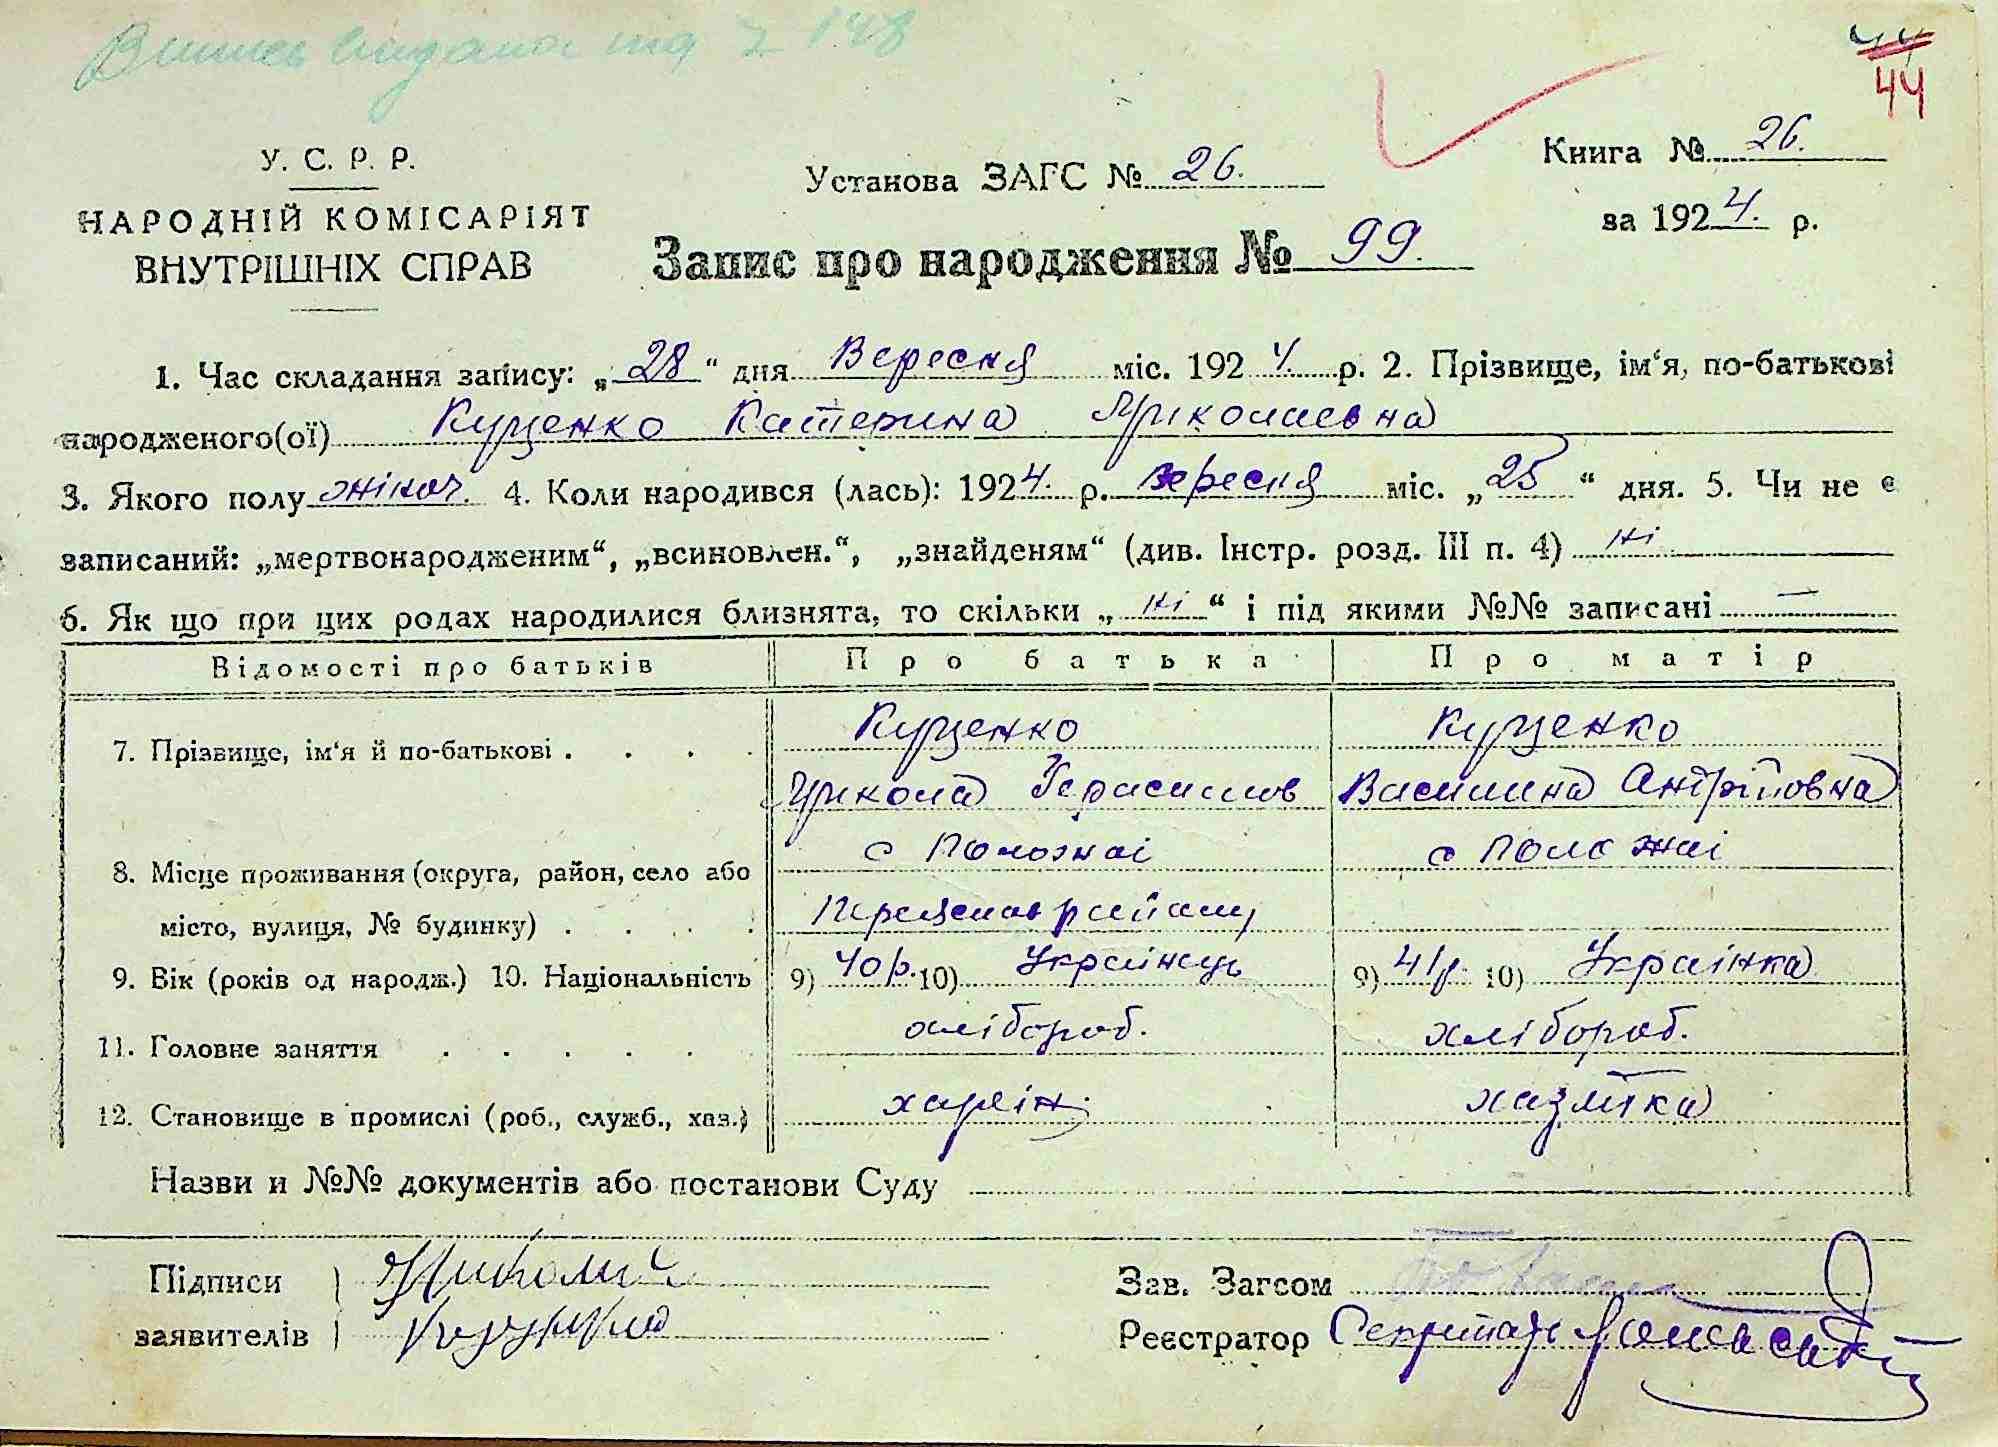 Випись видана 148
44
У. С. Р. Р.
НАРОДНІЙ КОМІСАРІЯТ
ВНУТРІШНІХ СПРАВ
Установа ЗАГС № 26.
Книга № 26.
за 1924. р.
Запис про народження № 99.
1. Час складання запису: „28“ дня Вересня міс. 1924. р. 2. Прізвище, ім‘я, по-батькові
народженого(ої) Куценко Катерина Миколаевна
3. Якого полу жіноч. 4. Коли народився (лась): 1924. р. Вересня міс. „25“ дня. 5. Чи не є
записаний: „мертвонародженим“, „всиновлен.“, „знайденям“ (див. Інстр. розд. III п. 4) ні
6. Як що при цих родах народилися близнята, то скільки „ні“ і під якими №№ записані —
Відомості про батьків Про батька Про матір
7. Прізвище, ім‘я й по-батькові . . . . Куценко Куценко
Микола Герасимов Василина Андріїовна
8. Місце проживання (округа, район, село або с Положаі с Положаі
місто, вулиця, № будинку) . . . . району
9. Вік (років од народж.) 10. Національність 9) 40 р. 10) Українець 9) 41 р. 10) Українка
11. Головне заняття . . . . . хлібороб. хлібороб.
12. Становище в промислі (роб., служб., хаз.) хазяїн. хазяїка
Назви и №№ документів або постанови Суду
Підписи Николай
заявителів
Зав. Загсом
Реєстратор Секретарь